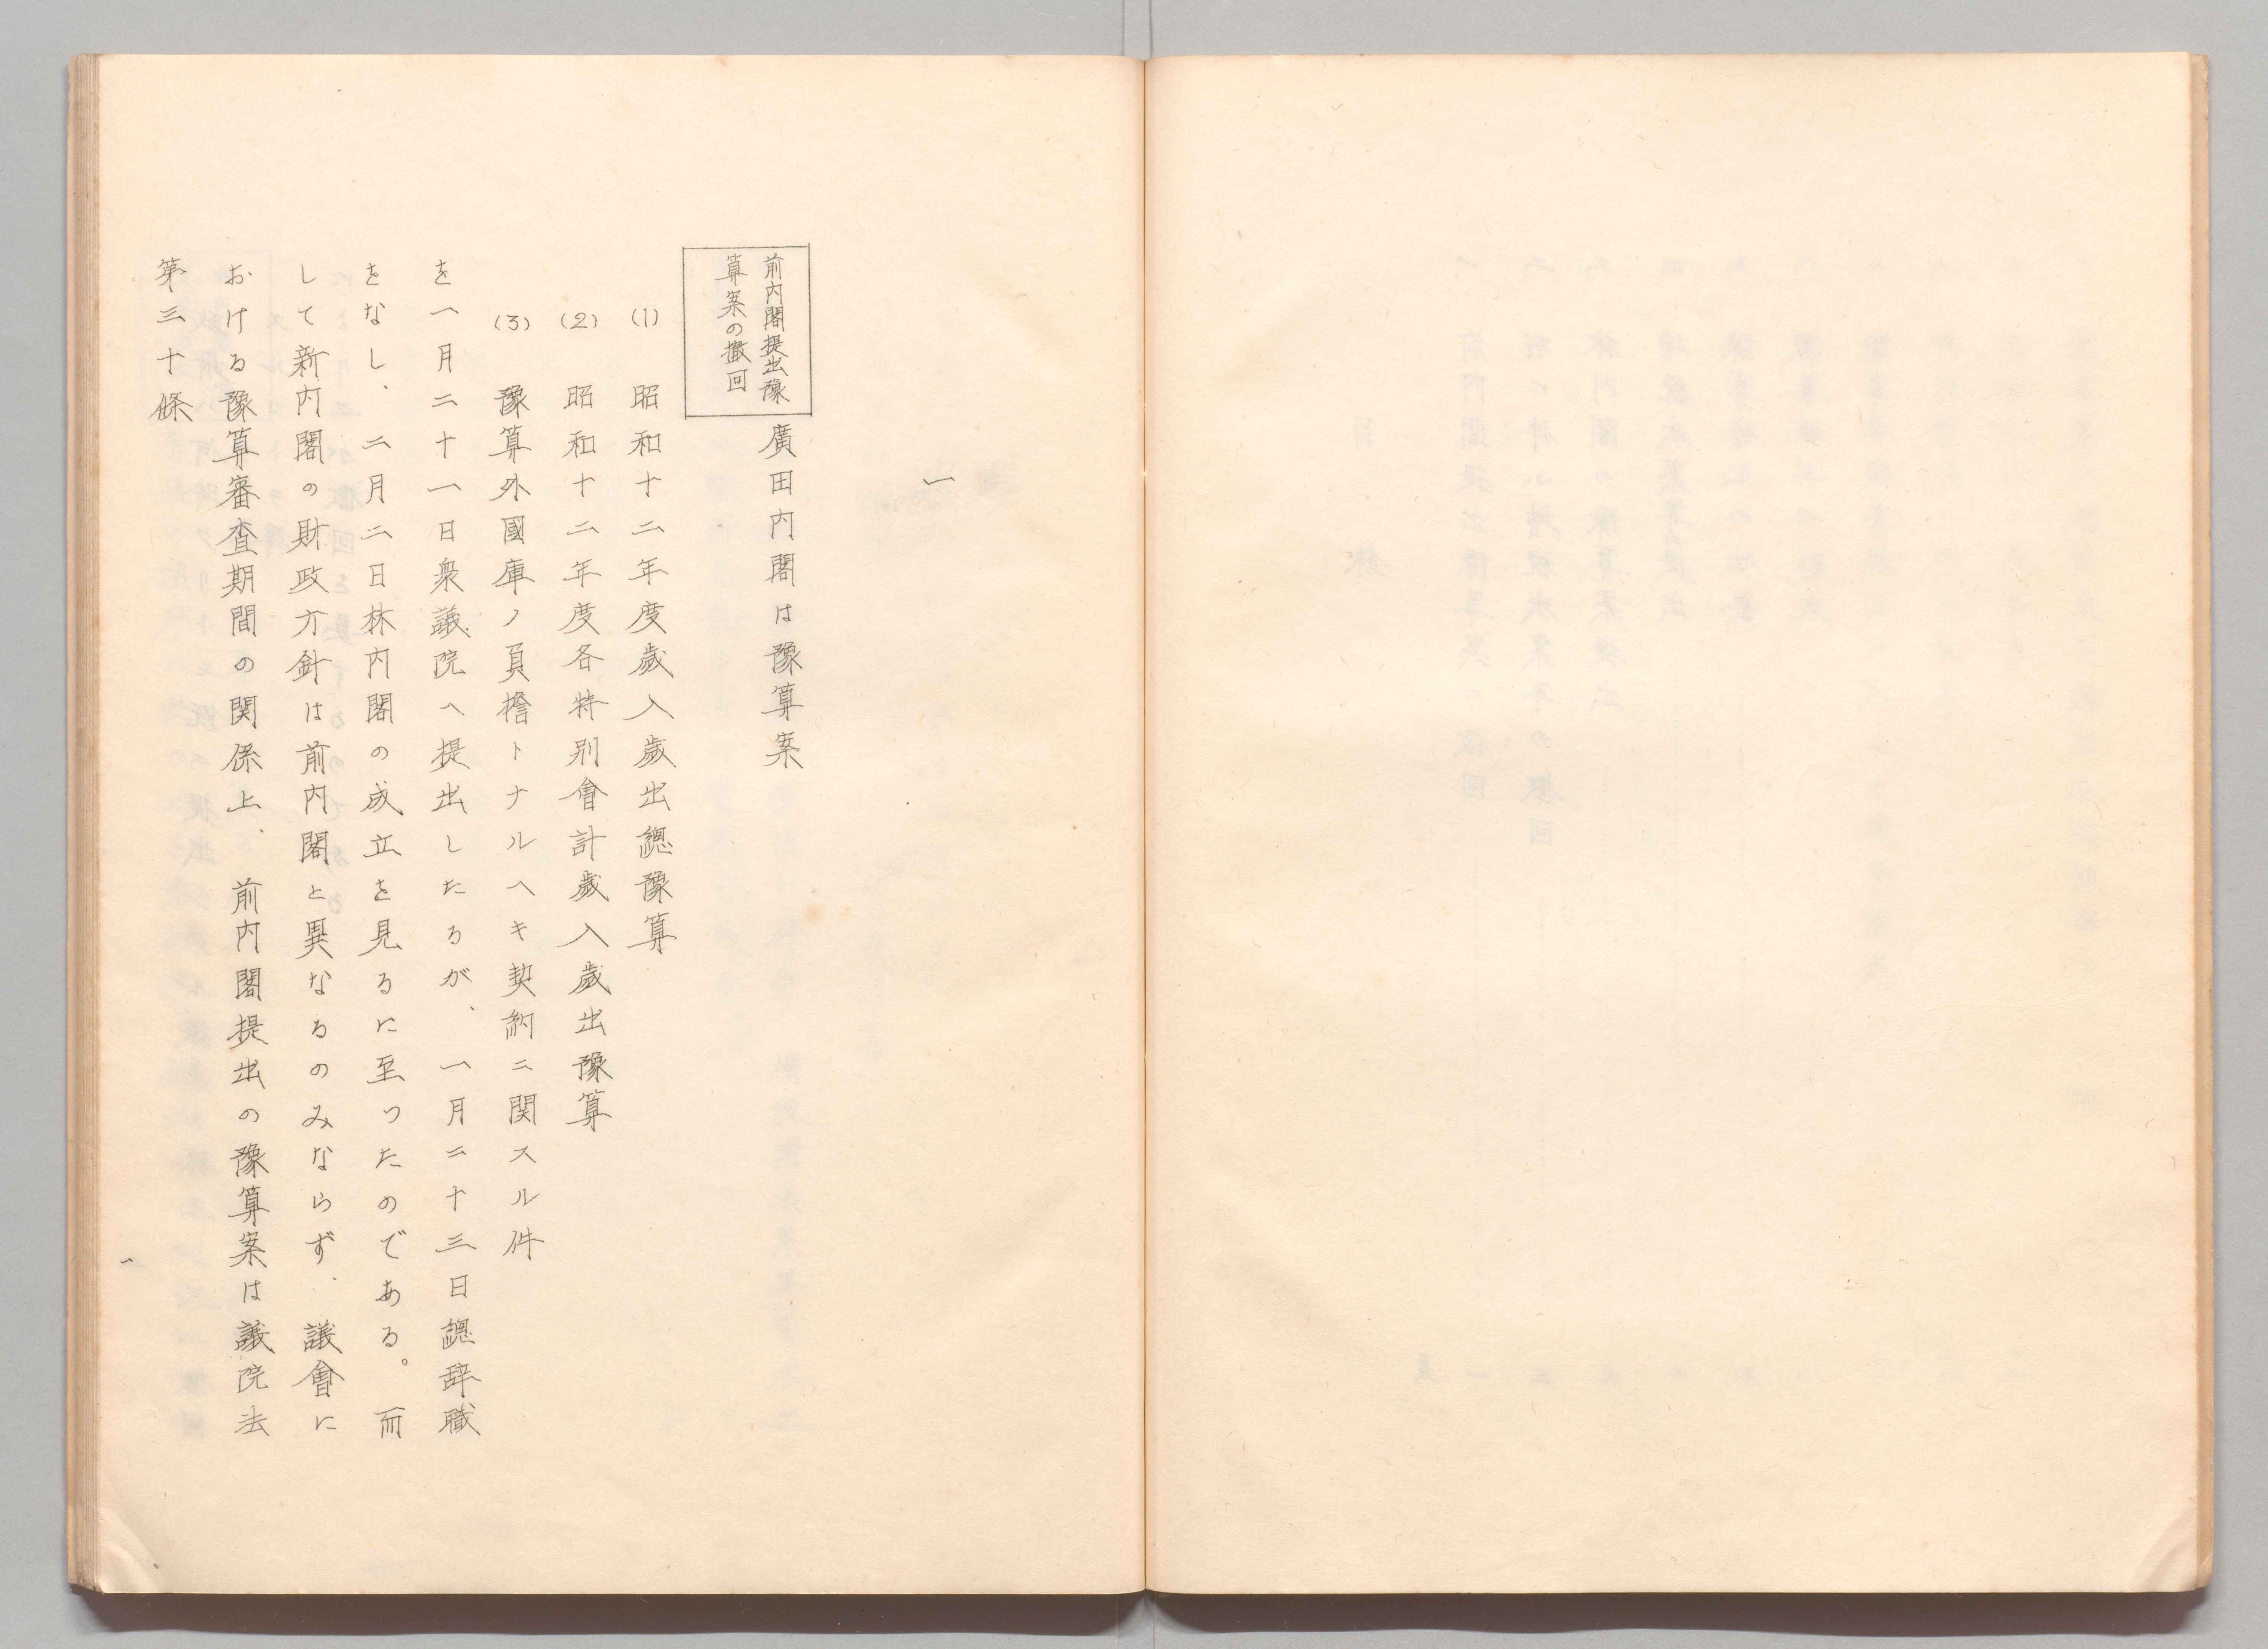 一
前内閣提出豫
算案の撤回
廣田内閣は豫算案
(1) 昭和十二年度歳入歳出總豫算
(2) 昭和十二年度各特別會計歳入歳出豫算
(3) 豫算外國庫ノ負擔トナルヘキ契約ニ関スル件
を一月二十一日衆議院へ提出したるが、一月二十三日總辞職
をなし、二月二日林内閣の成立を見るに至つたのである。而
して新内閣の財政方針は前内閣と異なるのみならず、議會に
おける豫算審査期間の関係上、前内閣提出の豫算案は議院法
第三十條
一